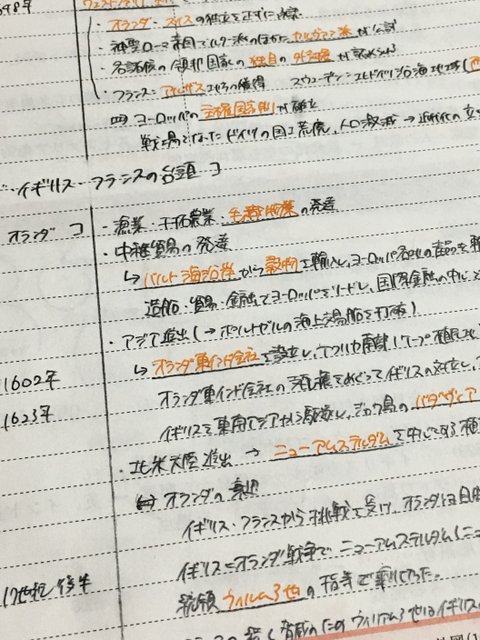 648年
・オランダ・スイスの独立を正式に承認
・神聖ローマ帝国でルター派のほかカルヴァン派が公認
・各諸侯の領邦国家の独自の外交権が認められ
・フランス: アルザス地方の獲得 スウェーデン:
ヨーロッパの主権国家体制が確立
戦場となったドイツの国土荒廃、人口激減 → 近代化の立
イギリス・フランスの台頭 コ
オランダ コ ・漁業・干拓農業・毛織物業の発達
・中継貿易の発達
↳ バルト海沿岸から穀物を輸入し、ヨーロッパ各地の産品を輸
造船・貿易・金融でヨーロッパをリードし、国際金融の中心と
・アジア進出(→ポルトガルの海上
1602年 ↳ オランダ東インド会社を設立し、アフリカ南端にケープ植民地を
オランダ東インド会社の発展をめぐってイギリスの対立し、
1623年 イギリスを東南アジアから駆逐し、ジャワ島のバタヴィア
・北米大陸進出 → ニューアムステルダムを中心とする植
⇔ オランダの衰退
イギリス・フランスから挑戦を受け、オランダは自
イギリス=オランダ戦争で、ニューアムステルダム(ニュ
17世紀後半 総領ウィレム3世の指導で乗り切った。
ウィリアム3世はイギリス